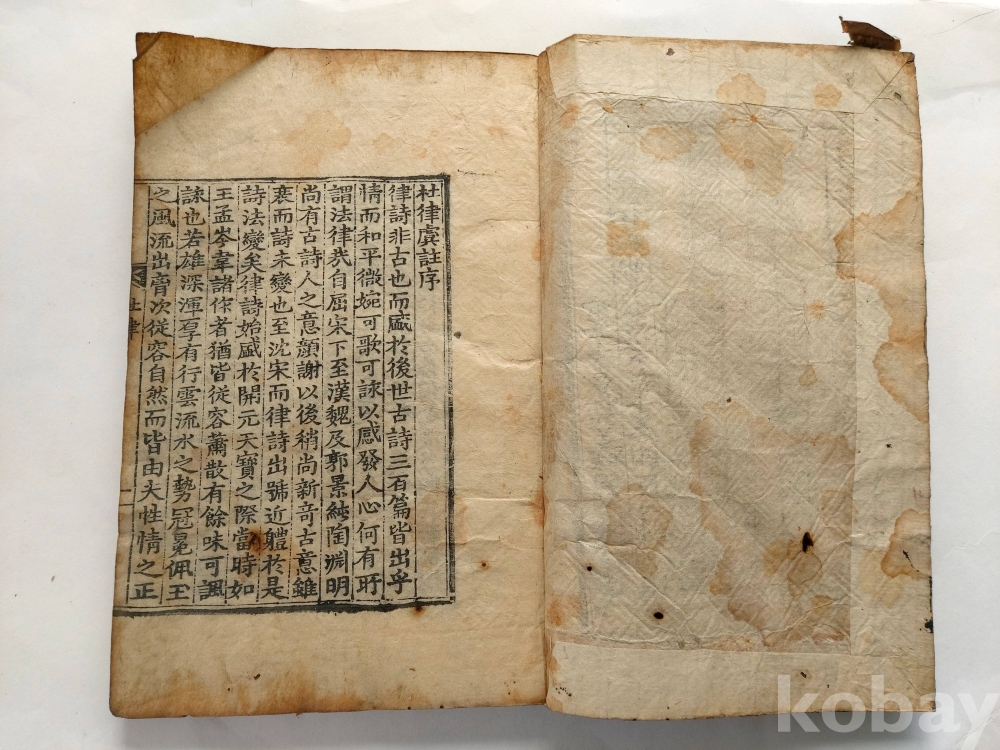 杜律虞註序
律詩非古也而盛於後世古詩三百篇皆出乎
情而和平微婉可歌可詠以感發人心何有所
謂法律㢤自屈宋下至漢魏及郭景純陶淵明
尚有古詩人之意顔謝以後稍尚新竒古意雖
衰而詩未變也至沈宋而律詩出號近體於是
詩法變矣律詩始盛於開元天寶之際當時如
王孟岑韋諸作者猶皆從容蕭散有餘味可諷
詠也若雄深渾厚有行雲流水之勢冠冕佩玉
之風流出胷次從容自然而皆由夫性情之正
杜律
kobay